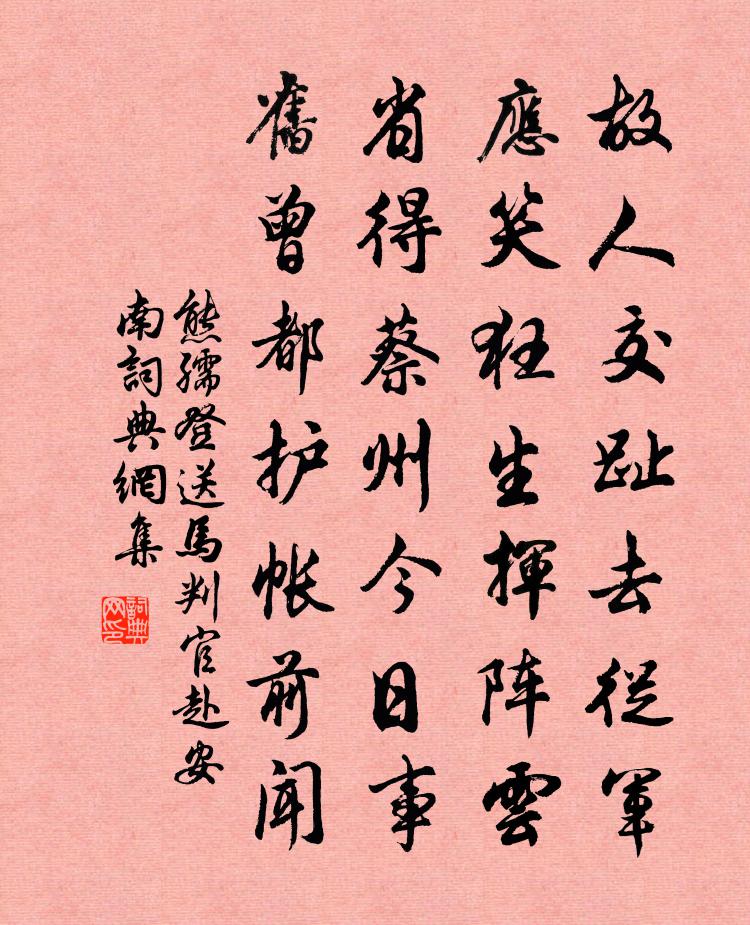 故人交趾去從軍
應笑狂生揮阵雲
省得蔡州今日事
舊曾都护帐前聞
熊孺登送馬判官赴安
南詞典網集
詞典
网印